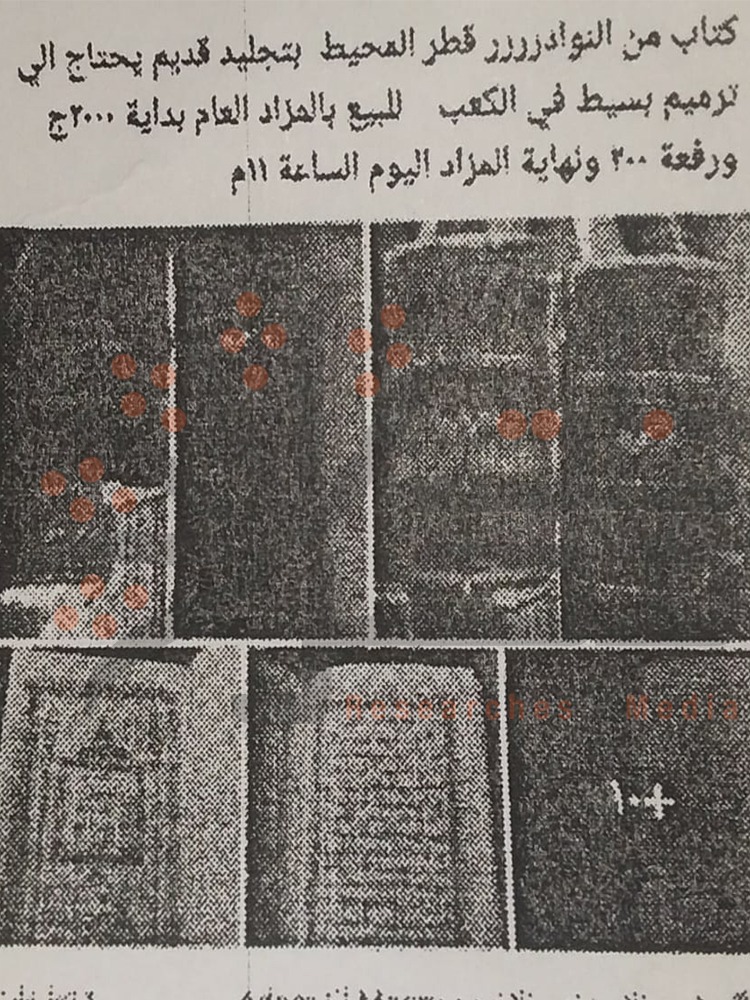 كتاب من النوادرررر قطر المحيط بتجليد قديم يحتاج الي
ترميم بسيط في الكعب للبيع بالمزاد العام بداية ٢٠٠٠ج
ورفعة ٢٠٠ ونهاية المزاد اليوم الساعة ١١م
Researches Media
+١٠